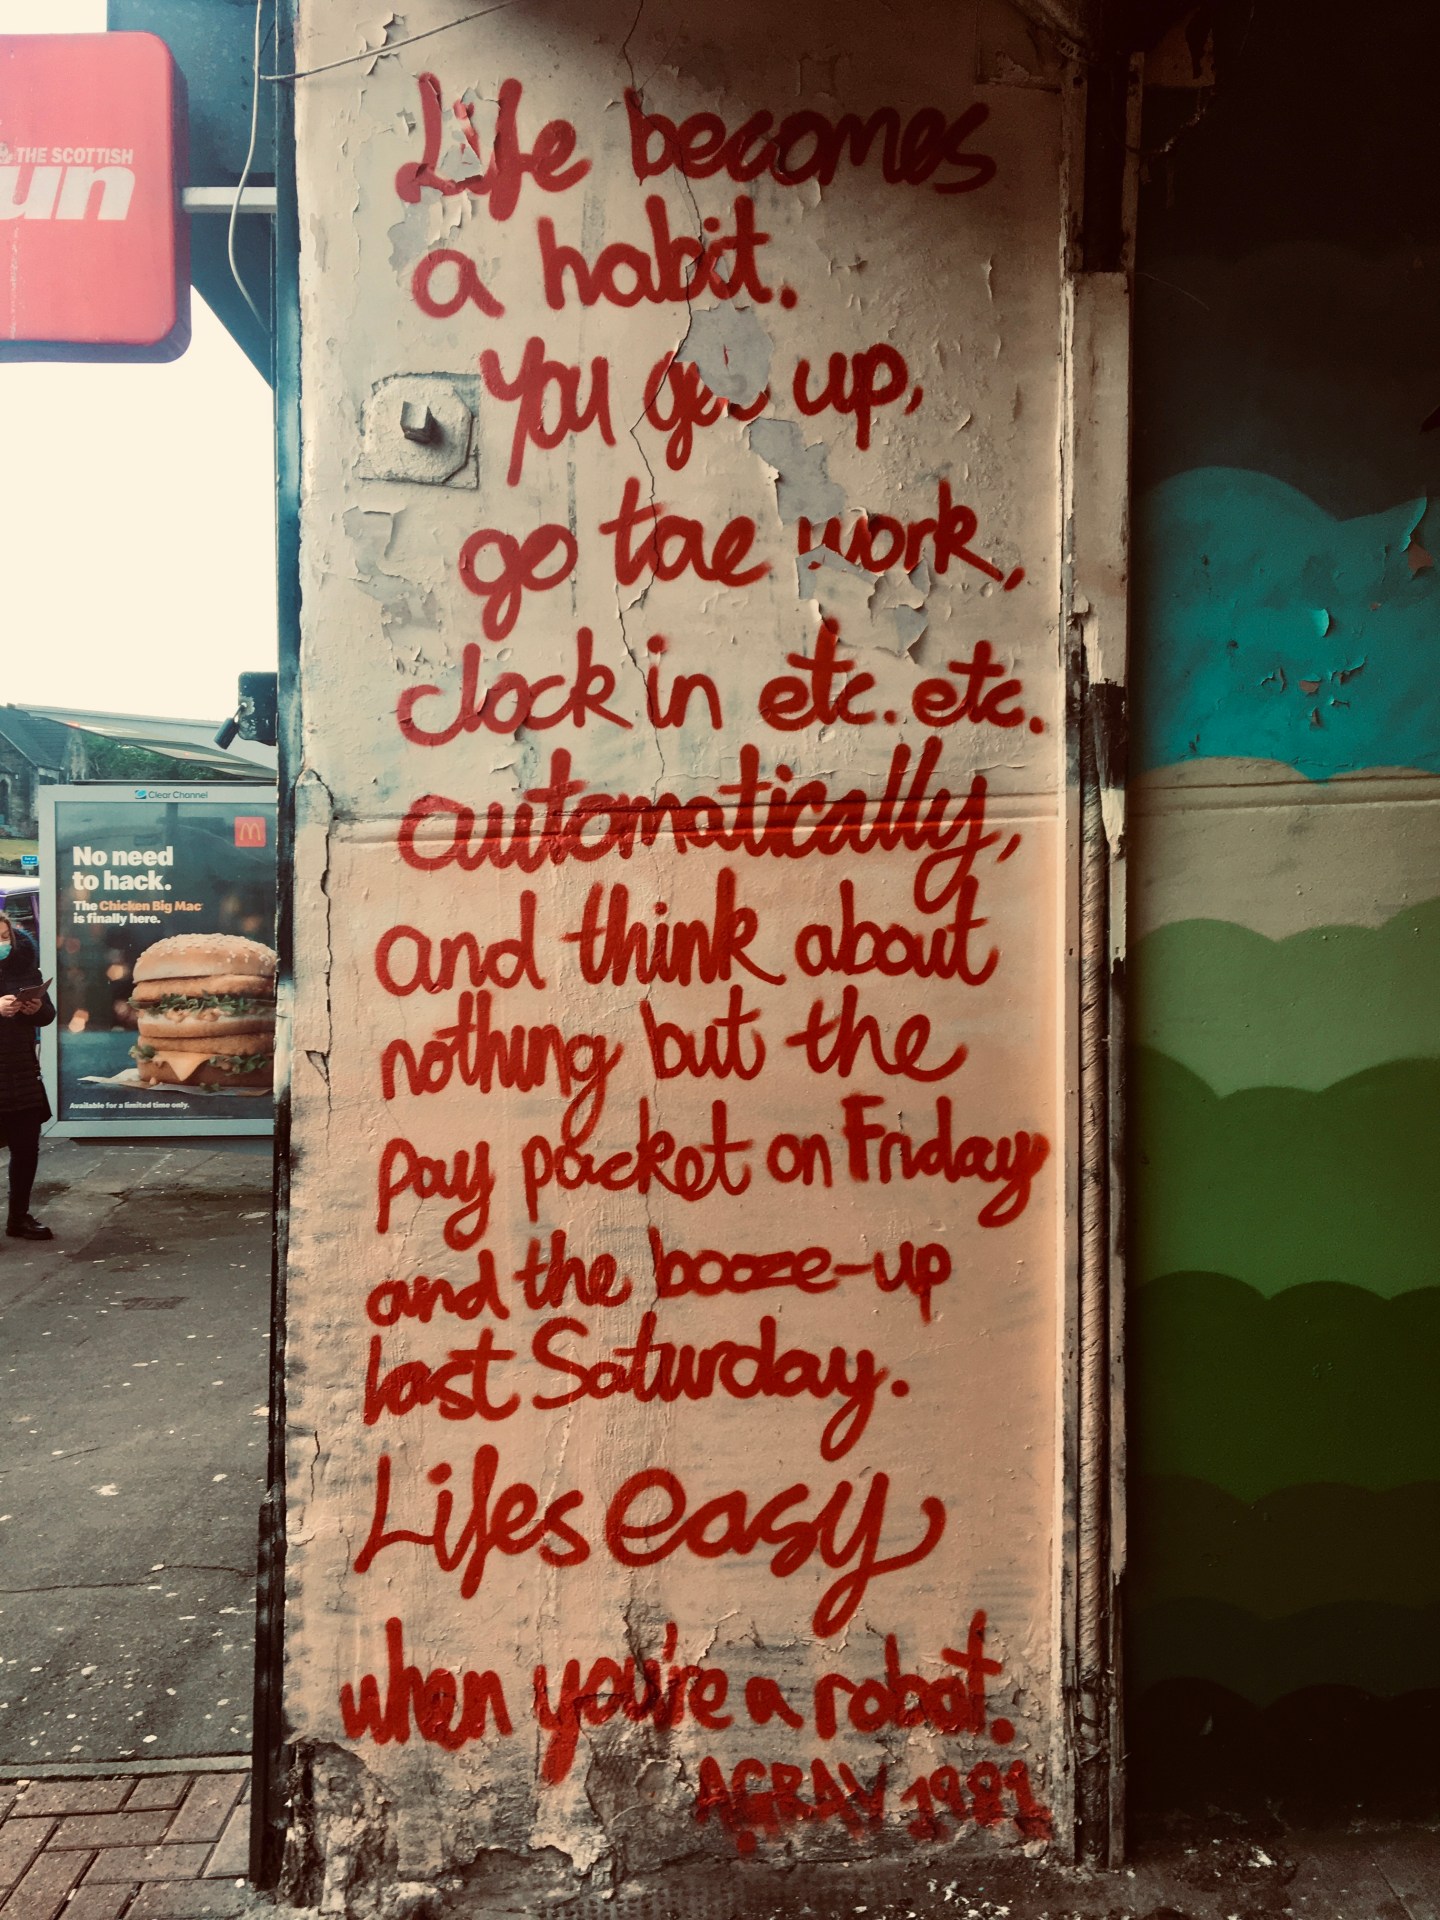 THE SCOTTISH
un
Life becomes
a habit.
You get up,
go tae work,
clock in etc. etc.
automatically,
and think about
nothing but the
pay packet on Friday
and the booze-up
last Saturday.
Lifes easy
when you're a robot.
AGRAY 1981
Clear Channel
No need
to hack.
The Chicken Big Mac
is finally here.
Available for a limited time only.